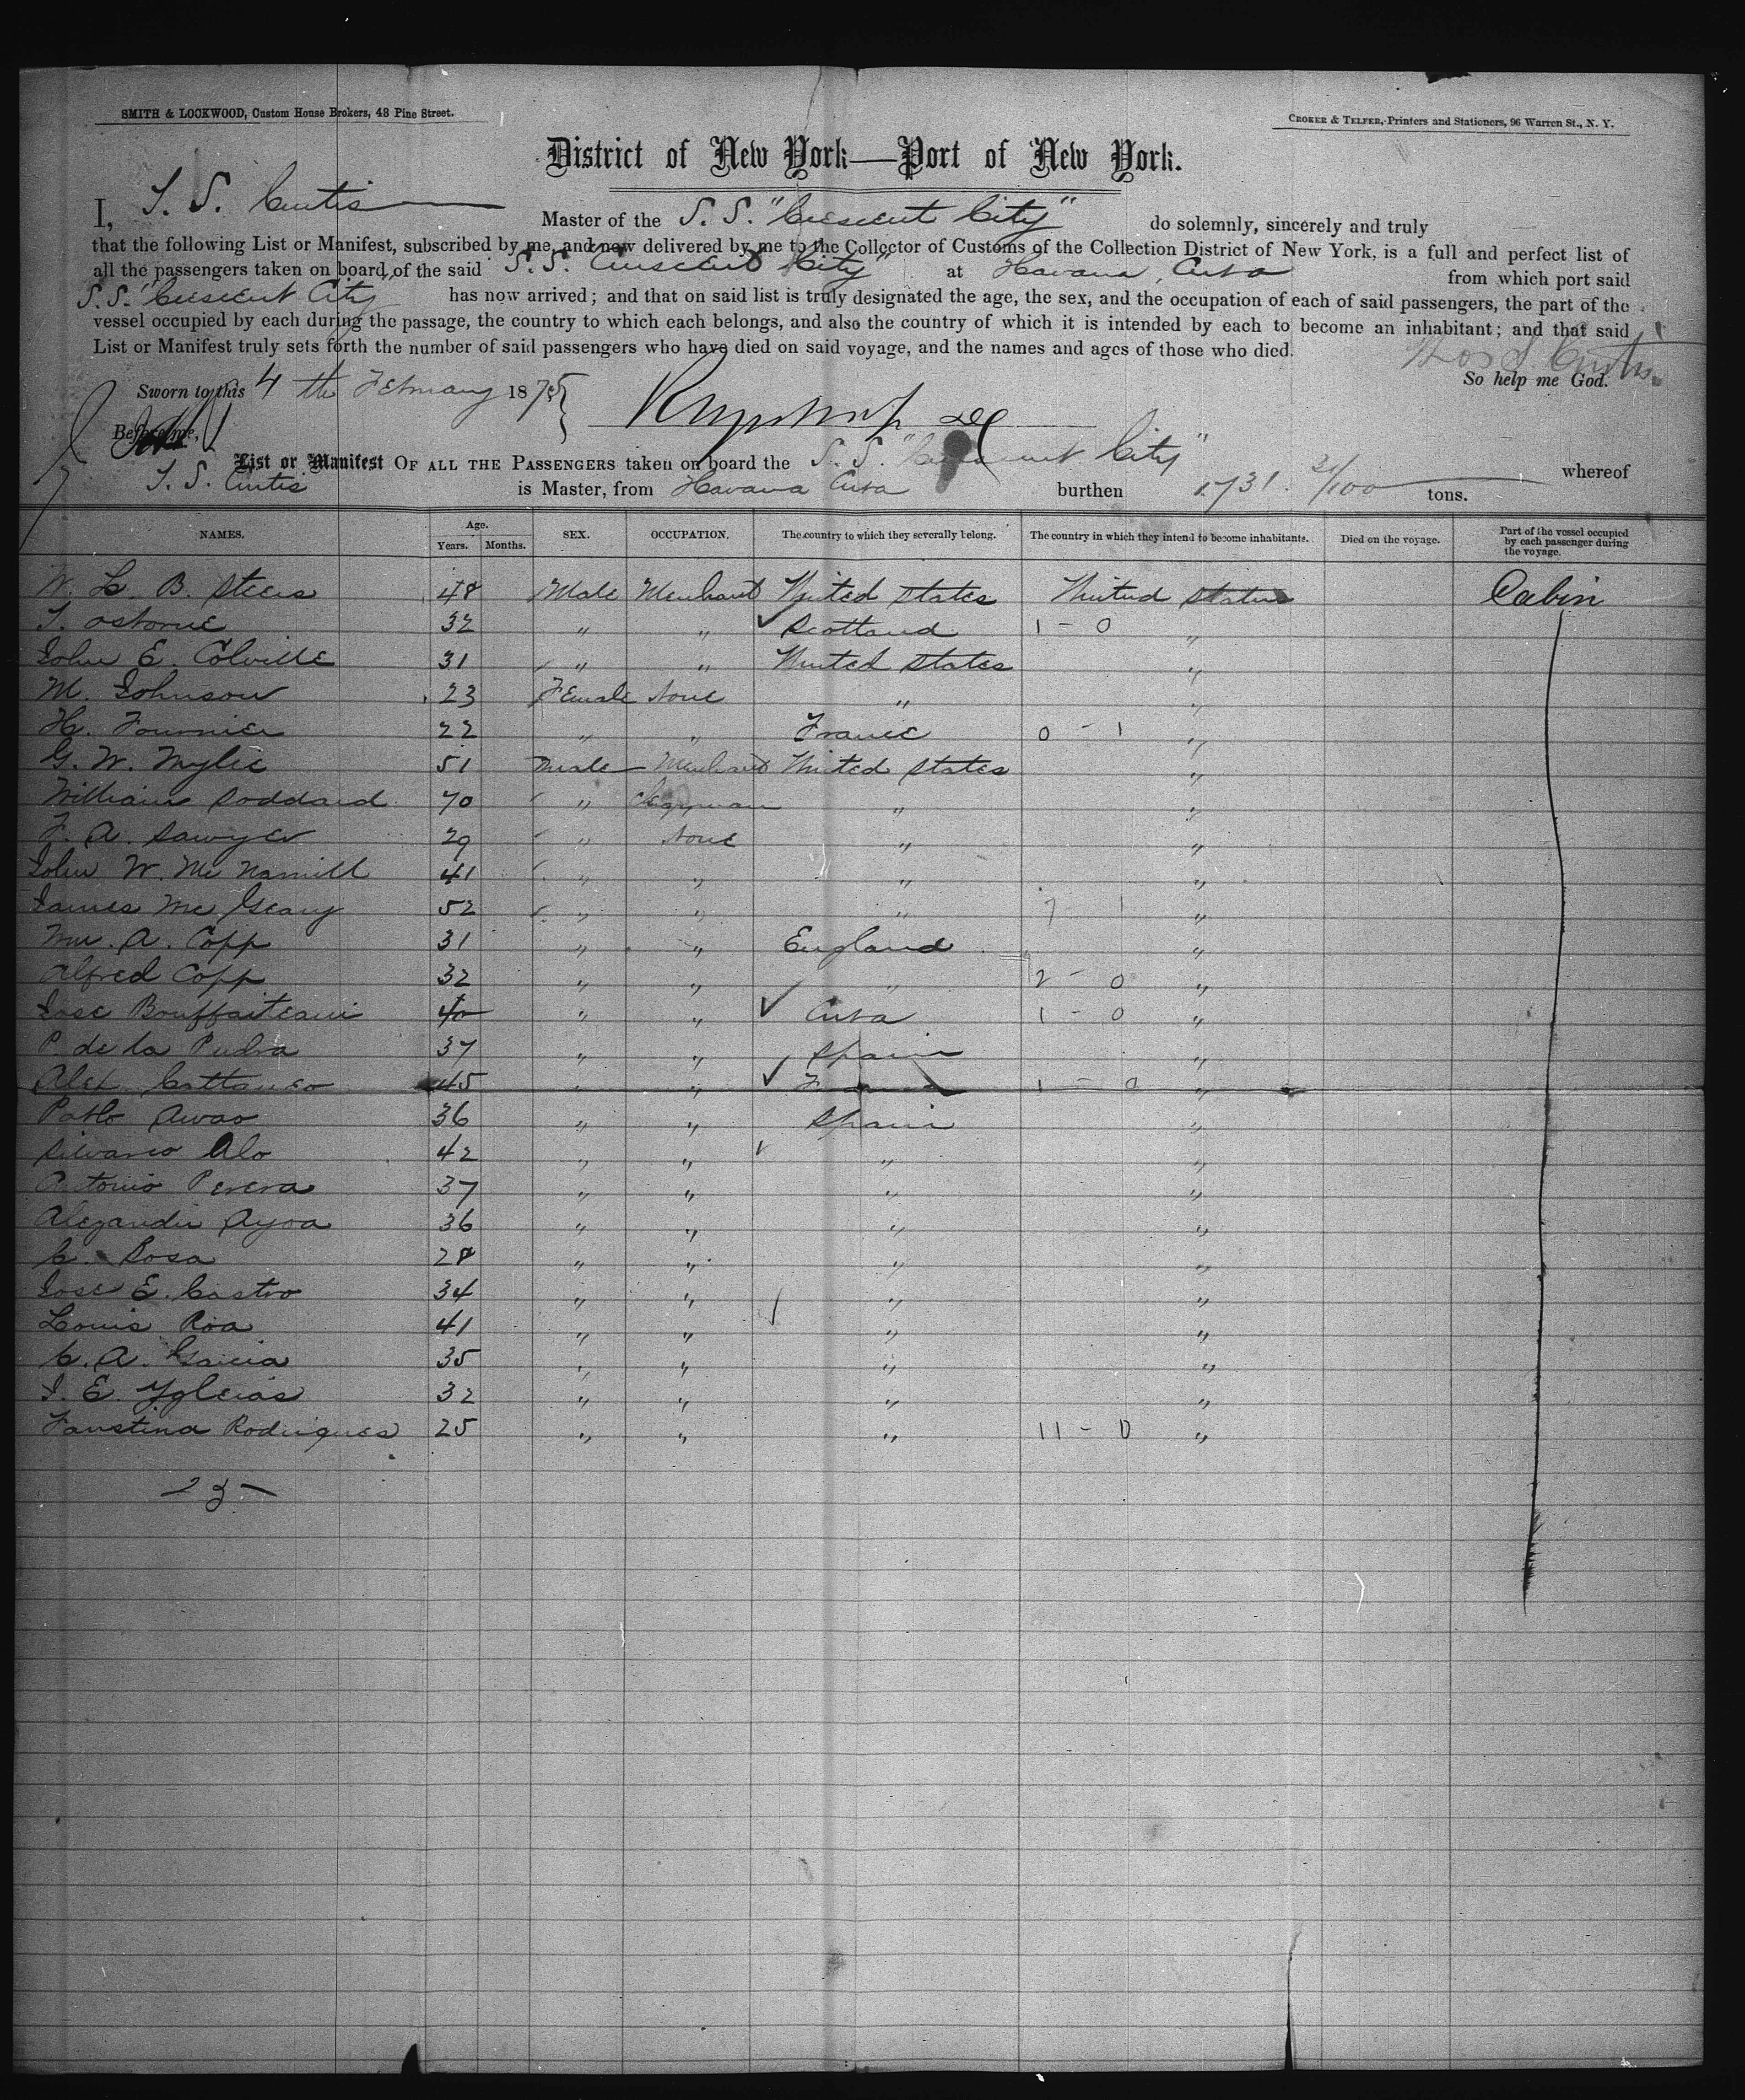 SMITH & LOCKWOOD, Custom House Brokers, 48 Pine Street.
CROKER & TELFER, Printers and Stationers, 96 Warren St., N. Y.
District of New York—Port of New York.
I, T. S. Curtis Master of the S. S. "Crescent City" do solemnly, sincerely and truly
that the following List or Manifest, subscribed by me, and now delivered by me to the Collector of Customs of the Collection District of New York, is a full and perfect list of
all the passengers taken on board of the said S. S. Crescent City" at Havana, Cuba from which port said
S. S. "Crescent City" has now arrived; and that on said list is truly designated the age, the sex, and the occupation of each of said passengers, the part of the
vessel occupied by each during the passage, the country to which each belongs, and also the country of which it is intended by each to become an inhabitant; and that said
List or Manifest truly sets forth the number of said passengers who have died on said voyage, and the names and ages of those who died.
Thos S. Curtis
So help me God.
Sworn to this 4 th February 1875
Before me,
List or Manifest OF ALL THE PASSENGERS taken on board the S. S. "Crescent City" whereof
T. S. Curtis is Master, from Havana Cuba burthen 1731 /100 tons.
NAMES. Age. Years. Months. SEX. OCCUPATION. The country to which they severally belong. The country in which they intend to become inhabitants. Died on the voyage. Part of the vessel occupied by each passenger during the voyage.
W. L. B. Steers 48 Male Merchant United States United States Cabin
T. Osborne 32 " " Scotland 1 - 0 "
John E. Colville 31 " " United States "
M. Johnson 23 Female None " "
H. Fournier 22 " " France 0 - 1 "
G. W. Wylie 51 Male Merchant United States "
William Goddard 70 " Clergyman " "
F. A. Sawyer 29 " None " "
John W. Mc 41 " " " "
James Mc Geary 52 " " " 7 - 1 "
Wm. A. Copp 31 " " England "
Alfred Copp 32 " " " 2 - 0 "
Jose 40 " " Cuba 1 - 0 "
P. de la Piedra 37 " " Spain "
Alex Cattaneo 45 " " 1 - 0 "
Pablo 36 " " Spain "
Alo 42 " " " "
Antonio Perera 37 " " " "
36 " " " "
C. Rosa 28 " " " "
Jose E. Castro 34 " " " "
Louis Roa 41 " " " "
C. A. Garcia 35 " " " "
J. E. Yglesias 32 " " " "
Faustina Rodrigues 25 " " " 11 - 0 "
25